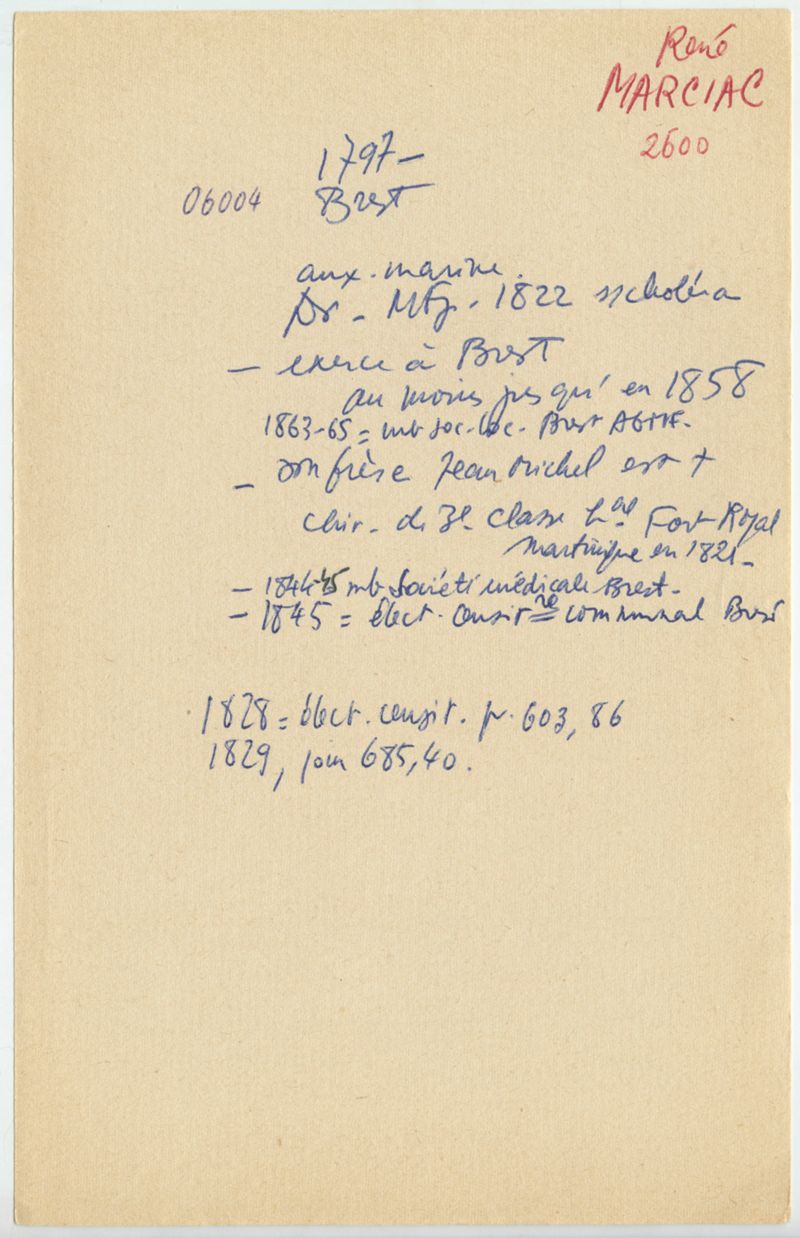 René
MARCIAC
2600
1797 -
06004 Brest
aux. marine.
Dr - Mtp. 1822 ss choléra
- exerce à Brest
au moins jusqu'en 1858
1863-65 = mb soc. loc. Brest AGMF.
- son frère Jean Michel est +
chir. de 3e classe hal Fort Royal
Martinique en 1821 -
- 1844-45 mb Société médicale Brest -
- 1845 = élect. censitre communal Brest
1828 = élect. censit. pr. 603,86
1829, pour 685,40.